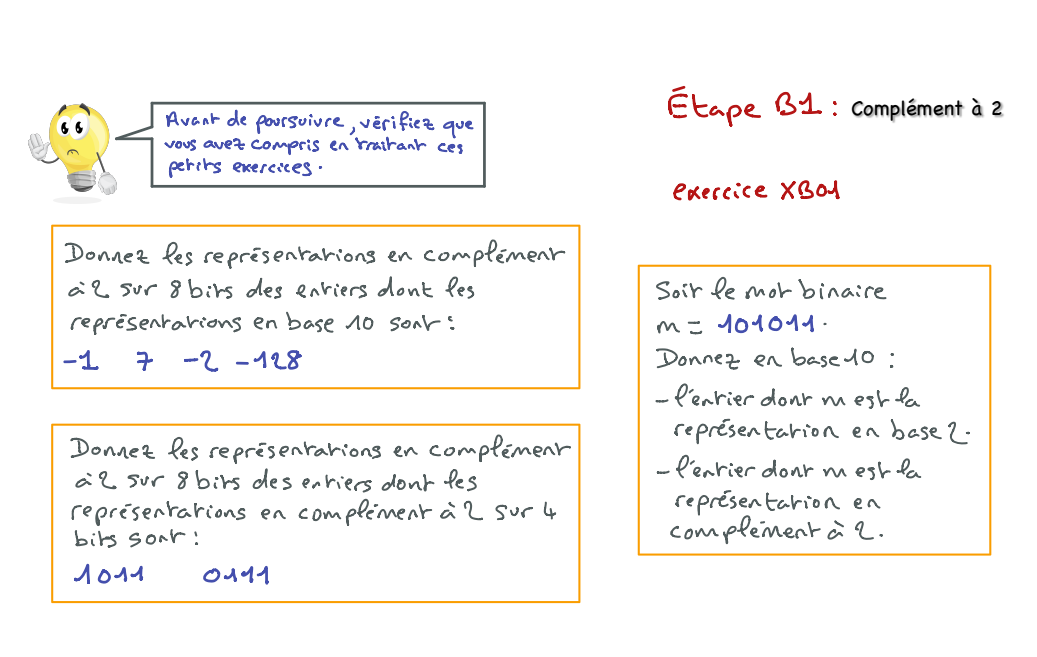 Avant de poursuivre, vérifiez que
vous avez compris en traitant ces
petits exercices.
Étape B1 : Complément à 2
exercice XB01
Donnez les représentations en complément
à 2 sur 8 bits des entiers dont les
représentations en base 10 sont :
-1 7 -2 -128
Donnez les représentations en complément
à 2 sur 8 bits des entiers dont les
représentations en complément à 2 sur 4
bits sont :
1011 0111
Soit le mot binaire
m = 101011.
Donnez en base 10 :
- l'entier dont m est la
représentation en base 2.
- l'entier dont m est la
représentation en
complément à 2.